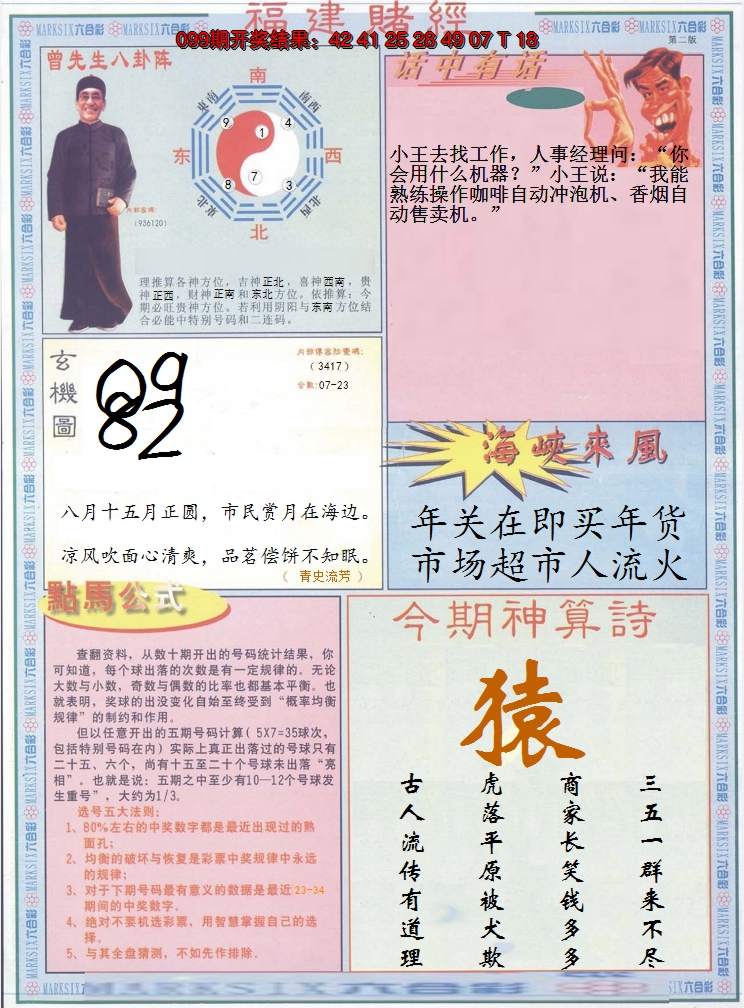 福建賭經
099期开奖结果：42 41 25 28 49 07 T 18
MARKSIX六合彩
第二版
曾先生八卦阵
南
東南
西南
9
1
4
东
西
8
7
3
東北
西北
北
內部密碼：
（936120）
理推算各神方位，吉神正北，喜神西南，贵
神正西，财神正南和东北方位。依推算：今
期必旺贵神方位。若利用阴阳与东南方位结
合必能中特别号码和二连码。
话中有话
小王去找工作，人事经理问：“你
会用什么机器？”小王说：“我能
熟练操作咖啡自动冲泡机、香烟自
动售卖机。”
玄機圖
09
82
（3417）
合数:07-23
八月十五月正圆，市民赏月在海边。
凉风吹面心清爽，品茗偿饼不知眠。
（ 青史流芳 ）
海峽來風
年关在即买年货
市场超市人流火
點馬公式
查翻资料，从数十期开出的号码统计结果，你
可知道，每个球出落的次数是有一定规律的。无论
大数与小数，奇数与偶数的比率也都基本平衡。也
就表明，奖球的出没变化自始至终受到“概率均衡
规律”的制约和作用。
但以任意开出的五期号码计算（5X7=35球次，
包括特别号码在内）实际上真正出落过的号球只有
二十五、六个，尚有十五至二十个号球未出落“亮
相”。也就是说：五期之中至少有10—12个号球发
生重号”，大约为1/3。
选号五大法则：
1、80%左右的中奖数字都是最近出现过的熟
面孔；
2、均衡的破坏与恢复是彩票中奖规律中永远
的规律；
3、对于下期号码最有意义的数据是最近23-34
期间的中奖数字。
4、绝对不要机选彩票，用智慧掌握自己的选
择。
5、与其全盘猜测，不如先作排除。
今期神算詩
猿
三五一群来不尽
商家长笑钱多多
虎落平原被犬欺
古人流传有道理